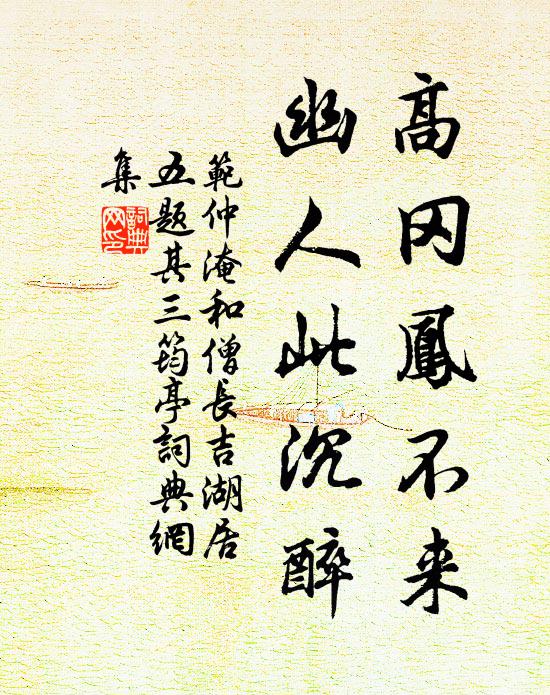 高冈鳳不来
幽人此沉醉
範仲淹和僧長吉湖居
五题其三筠亭詞典網
集
詞典
网印